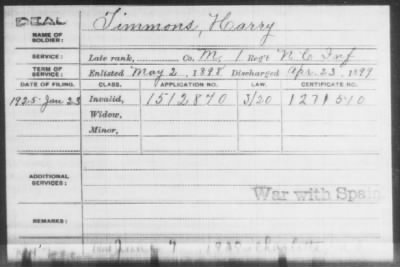 DEAL
NAME OF SOLDIER: Timmons, Harry
SERVICE: Late rank, Co. M, 1 Reg't N.C. Inf
TERM OF SERVICE: Enlisted May 2, 1898 Discharged Apr. 23, 1899
DATE OF FILING. CLASS. APPLICATION NO. LAW. CERTIFICATE NO.
1925-Jan 23 Invalid, 1512870 3/20 1271510
Widow,
Minor,
ADDITIONAL SERVICES:
War with Spain
REMARKS: